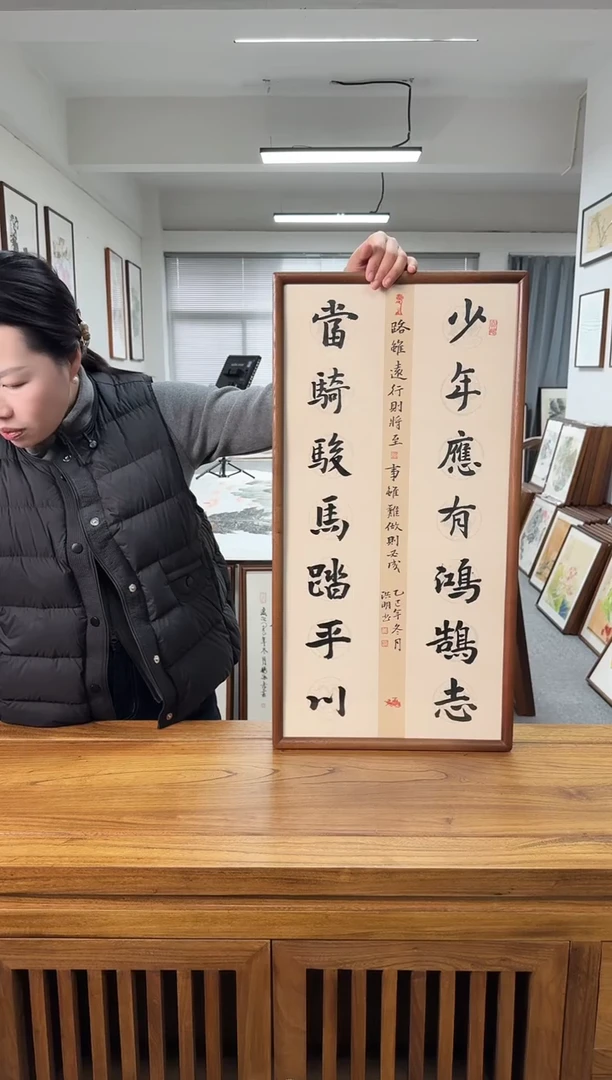 少年應有鴻鵠志
路雖遠行則將至
事雖難做則必成
乙巳年冬月
洪明書
當騎駿馬踏平川